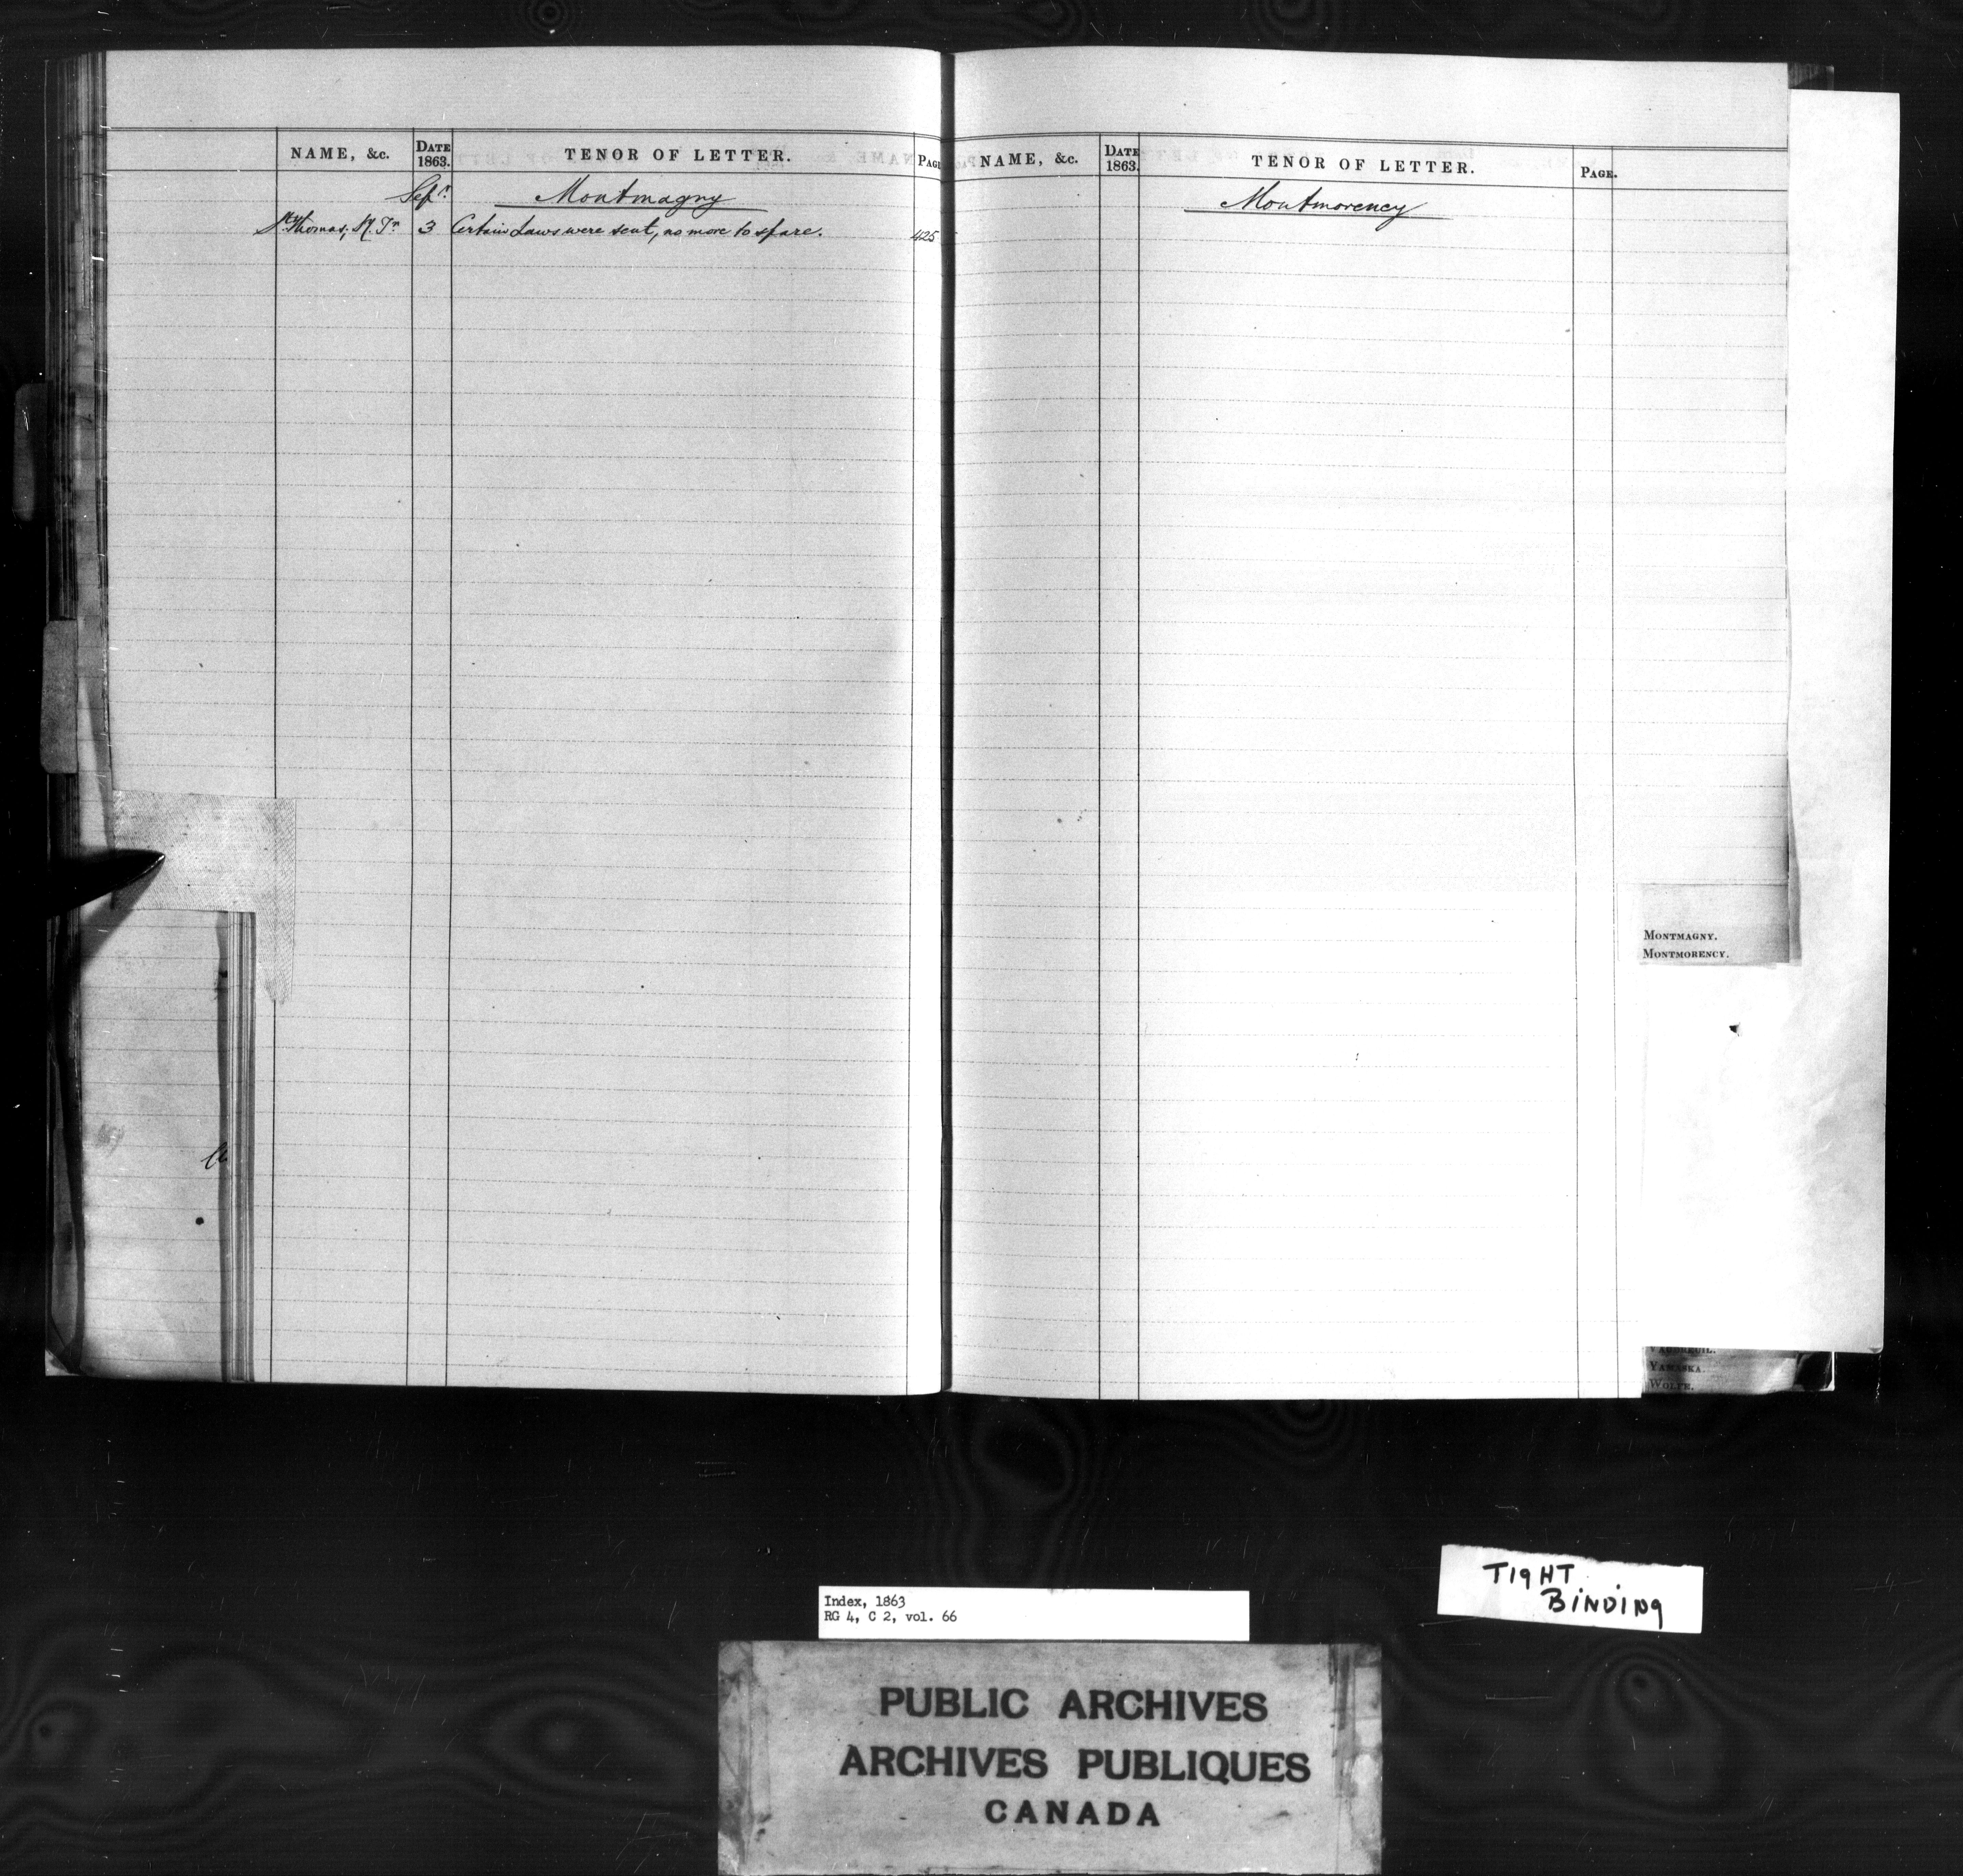 NAME, &c.
DATE 1863.
TENOR OF LETTER.
PAGE
Sepr.
Montmagny
St. Thomas, 3 Certain Laws were sent, no more to spare. 425
NAME, &c.
DATE 1863.
TENOR OF LETTER.
PAGE.
Montmorency
MONTMAGNY.
MONTMORENCY.
VAUDREUIL.
YAMASKA.
WOLFE.
TIGHT
BINDING
Index, 1863
RG 4, C 2, vol. 66
PUBLIC ARCHIVES
ARCHIVES PUBLIQUES
CANADA